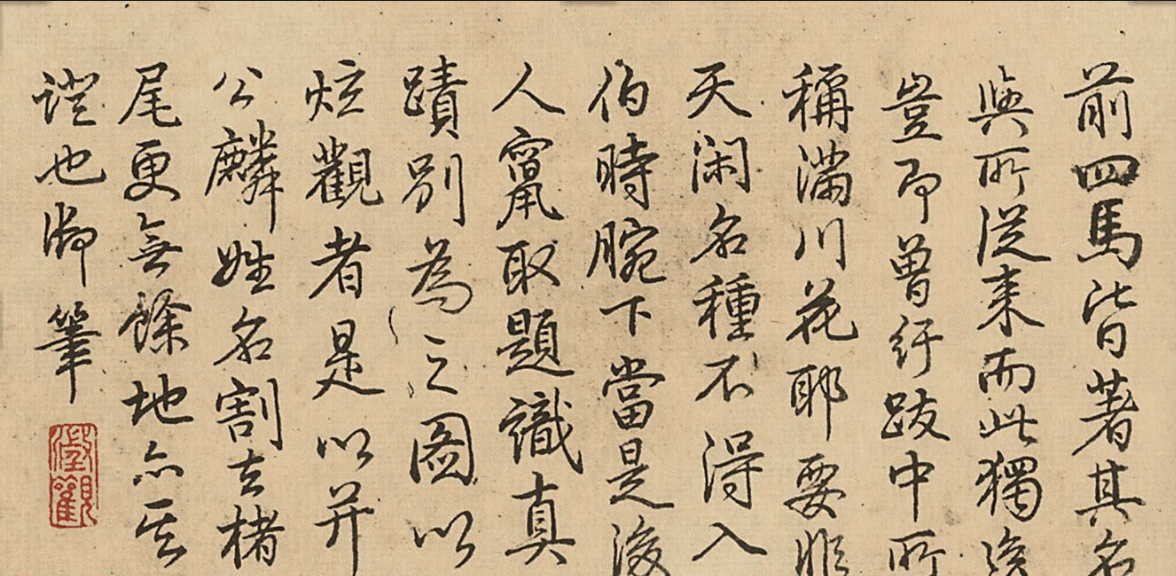 前四馬皆著其名
與所從来而此獨
豈即曾紆跋中所
稱滿川花耶要非
天閑名種不得入
伯時腕下當是後
人竄取題識真
蹟別為之圖以
炫觀者是以并
公麟姓名割去楮
尾更無餘地亦其
證也御筆
澂觀